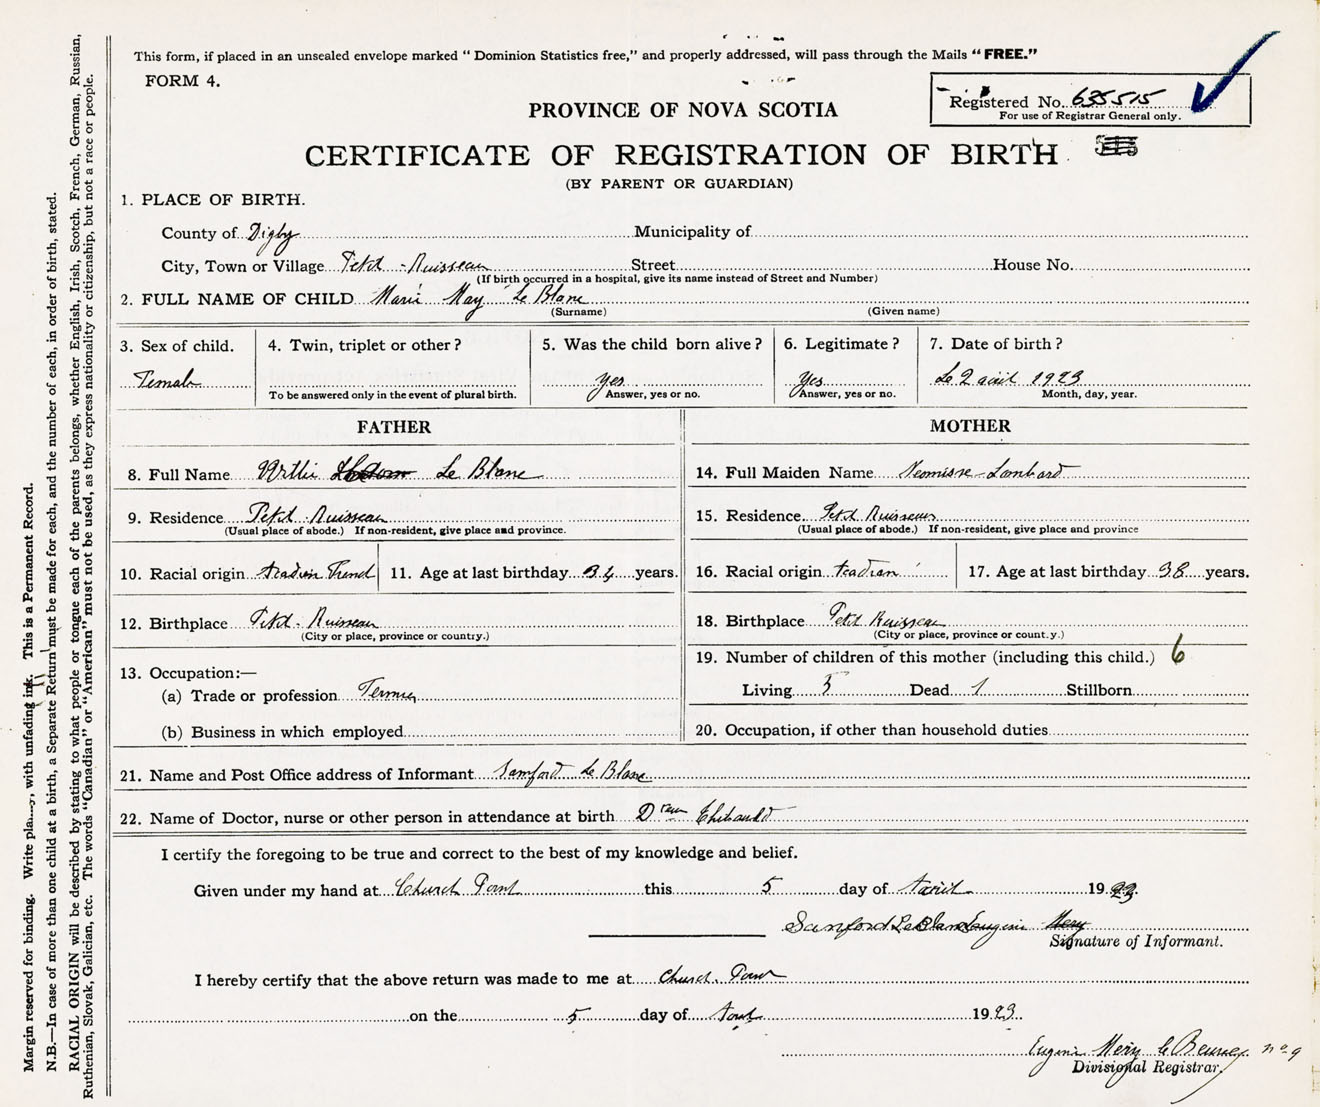 This form, if placed in an unsealed envelope marked “ Dominion Statistics free,” and properly addressed, will pass through the Mails “ FREE.”
FORM 4.
Registered No. 635515
For use of Registrar General only.
PROVINCE OF NOVA SCOTIA
CERTIFICATE OF REGISTRATION OF BIRTH
(BY PARENT OR GUARDIAN)
1. PLACE OF BIRTH.
County of Digby Municipality of
City, Town or Village Petit-Ruisseau Street House No.
(If birth occurred in a hospital, give its name instead of Street and Number)
2. FULL NAME OF CHILD Marie May Le Blanc
(Surname) (Given name)
3. Sex of child. 4. Twin, triplet or other? 5. Was the child born alive? 6. Legitimate? 7. Date of birth?
Female yes Yes Le 2 avril 1923
To be answered only in the event of plural birth. Answer, yes or no. Answer, yes or no. Month, day, year.
FATHER MOTHER
8. Full Name Willie Le Blanc 14. Full Maiden Name Lombard
9. Residence Petit-Ruisseau 15. Residence Petit Ruisseau
(Usual place of abode.) If non-resident, give place and province. (Usual place of abode.) If non-resident, give place and province
10. Racial origin 11. Age at last birthday 34 years. 16. Racial origin Acadian 17. Age at last birthday 38 years.
12. Birthplace Petit-Ruisseau 18. Birthplace Petit Ruisseau
(City or place, province or country.) (City or place, province or count.y.)
19. Number of children of this mother (including this child.) 6
13. Occupation:—
(a) Trade or profession Living 5 Dead 1 Stillborn
(b) Business in which employed 20. Occupation, if other than household duties
21. Name and Post Office address of Informant Samford Le Blanc
22. Name of Doctor, nurse or other person in attendance at birth Thibault
I certify the foregoing to be true and correct to the best of my knowledge and belief.
Given under my hand at Church Point this 5 day of 1923.
Sanford LeBlanc Eugenie Mery
Signature of Informant.
I hereby certify that the above return was made to me at Church Point
on the 5 day of 1923.
Eugenie Mery no 9
Divisional Registrar.
Margin reserved for binding. Write with unfading ink. This is a Permanent Record.
N.B.—In case of more than one child at a birth, a Separate Return must be made for each, and the number of each, in order of birth, stated.
RACIAL ORIGIN will be described by stating to what people or tongue each of the parents belongs, whether English, Irish, Scotch, French, German, Russian,
Ruthenian, Slovak, Galician, etc. The words “Canadian” or “American” must not be used, as they express nationality or citizenship, but not a race or people.